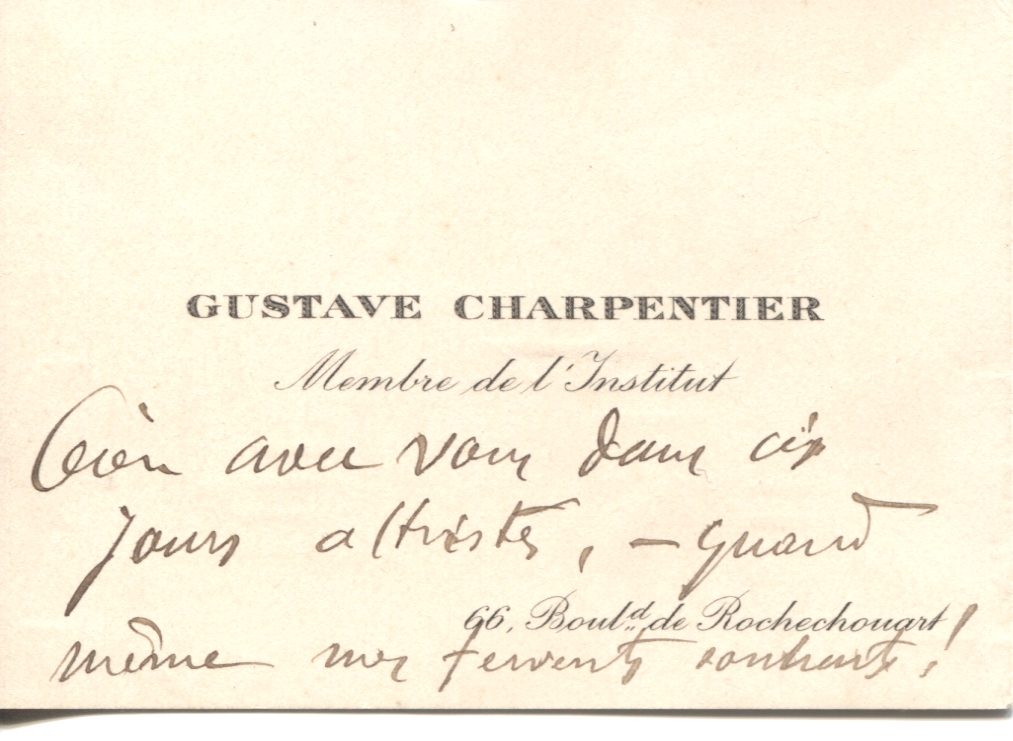 GUSTAVE CHARPENTIER
Membre de l'Institut
Bien avec vous dans ces
jours attristés, – quand
66, Boul.d de Rochechouart
même mes fervents souhaits !